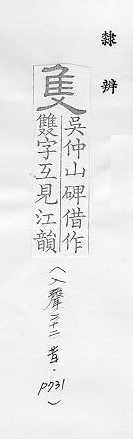 隸辨
隻
吳仲山碑借作
雙字互見江韻
(入聲二十二昔·P731)